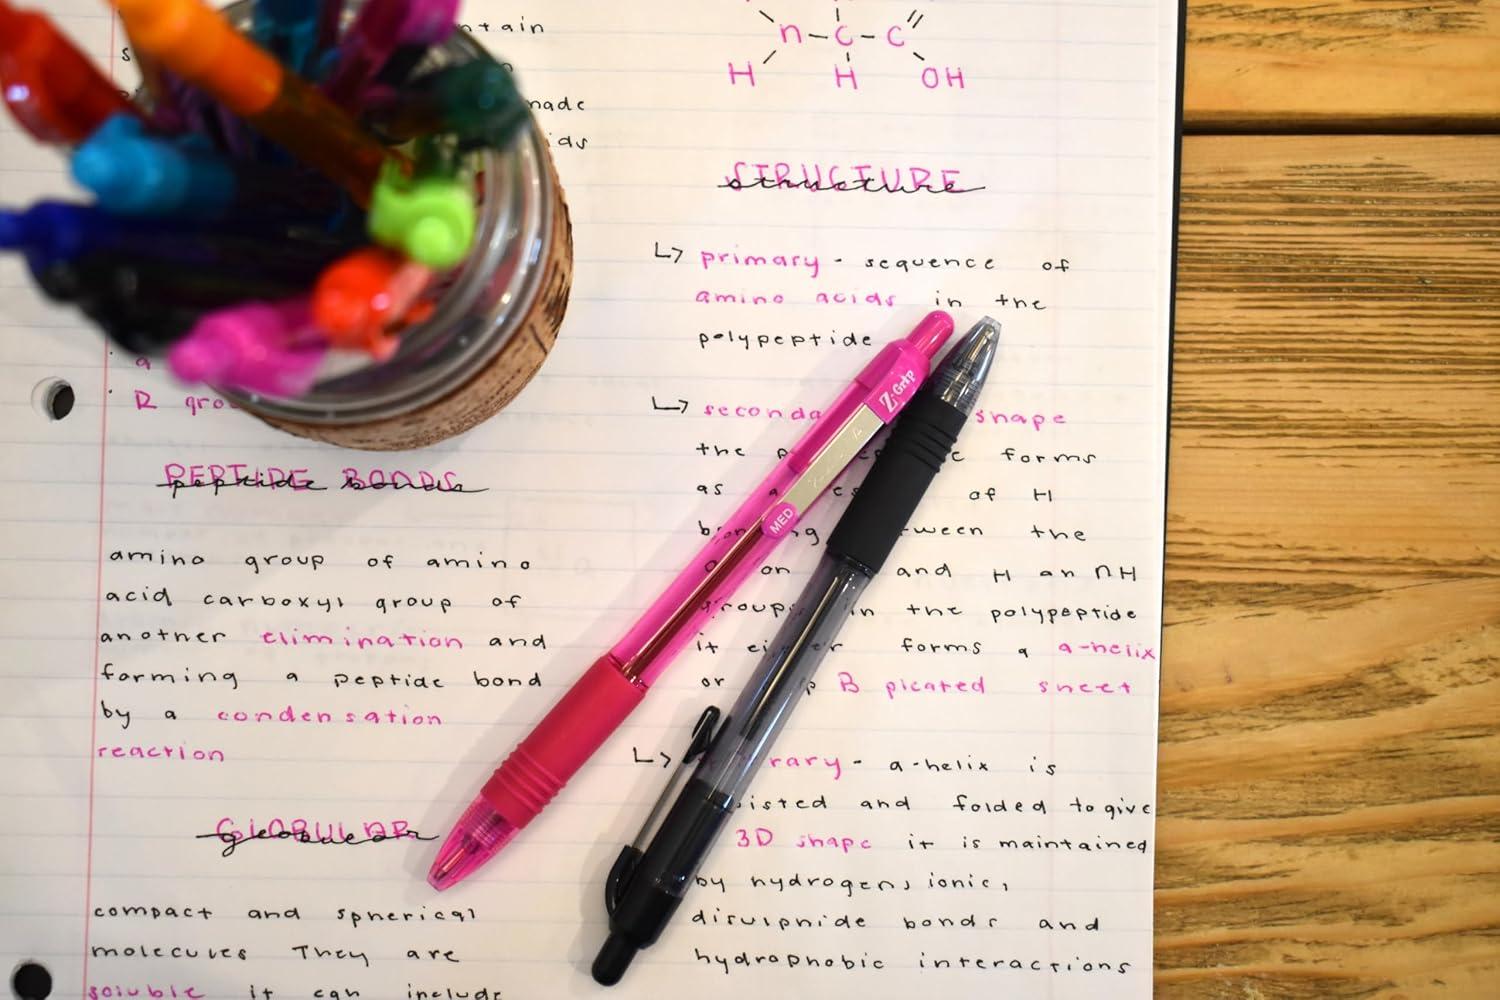 made
R
PEPTIDE BONDS
peptide bonds
amino group of amino
acid carboxyl group of
another elimination and
forming a peptide bond
by a condensation
reaction
GLOBULAR
globular
compact and spherical
molecules They are
soluble it can include
n – C – C
H H OH
STRUCTURE
structure
↳ primary - sequence of
amino acids in the
polypeptide
↳ shape
the forms
as a of H
the
on and H an NH
groups in the polypeptide
it forms a a-helix
or B pleated sheet
↳ - a-helix is
and folded to give
3D shape it is maintained
by hydrogen, ionic,
disulphide bonds and
hydrophobic interactions
Z-Grip
MED